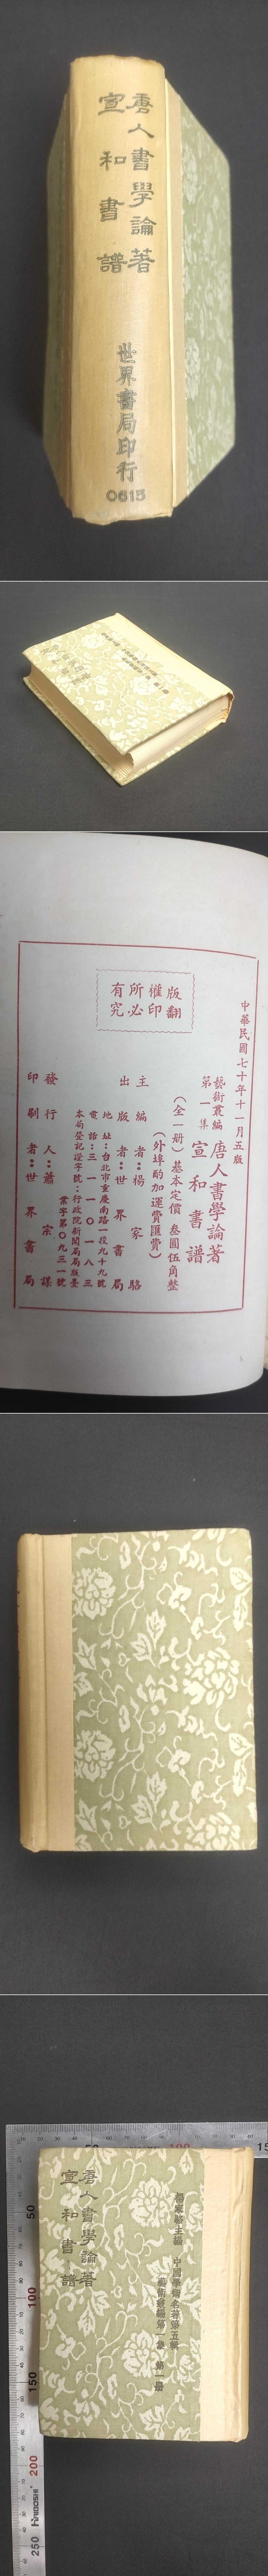 唐人書學論著
宣和書譜
世界書局印行
0615
中華民國七十年十一月五版
藝術叢編
第一集
唐人書學論著
宣和書譜
(全一册)基本定價 叁圓伍角整
(外埠酌加運費匯費)
版權所有
翻印必究
主編者:楊家駱
出版者:世界書局
地址:台北市重慶南路一段九十九號
電話:三一一〇一八三
本局登記證字號:行政院新聞局局版臺
業字第〇九三一號
發行人:蕭宗謀
印刷者:世界書局
楊家駱主編 中國學術名著第五輯
藝術叢編第一集 第一册
唐人書學論著
宣和書譜
50
100
150
200
250
50
100
15